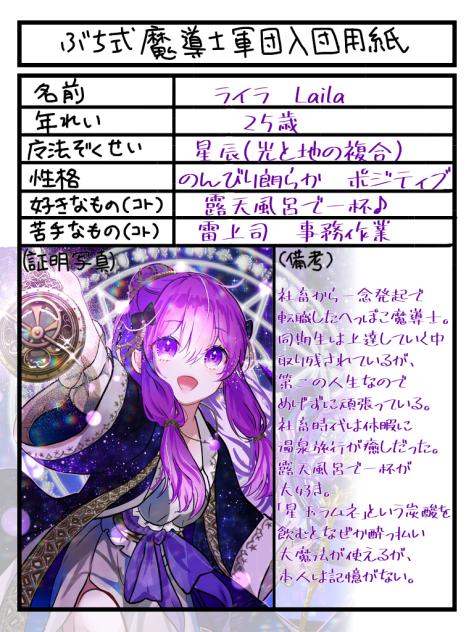 ぶち式魔導士軍団入団用紙
名前 ライラ Laila
年れい 25歳
广法ぞくせい 星辰(光と地の複合)
性格 のんびり朗らか ポジティブ
好きなもの(コト) 露天風呂で一杯♪
苦手なもの(コト) 雷上司 事務作業
(証明写真)
(備考)
社畜から一念発起で
転職したへっぽこ魔導士。
同期生は上達していく中
取り残されているが、
第二の人生なので
めげずに頑張っている。
社畜時代は休暇に
温泉旅行が癒しだった。
露天風呂で一杯が
大好き。
「星空ラムネ」という炭酸を
飲むとなぜか酔っ払い
大魔法が使えるが、
本人は記憶がない。